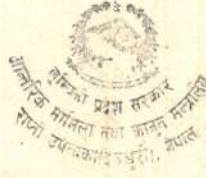 लुम्बिनी प्रदेश सरकार
आन्तरिक मामिला तथा कानून मन्त्रालय
राप्ती उपत्यका(देउखुरी), नेपाल